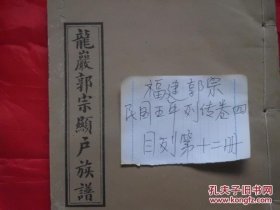 龍巖郭宗顯戶族譜
福建郭宗
民国五年列传卷四
目列第十二册